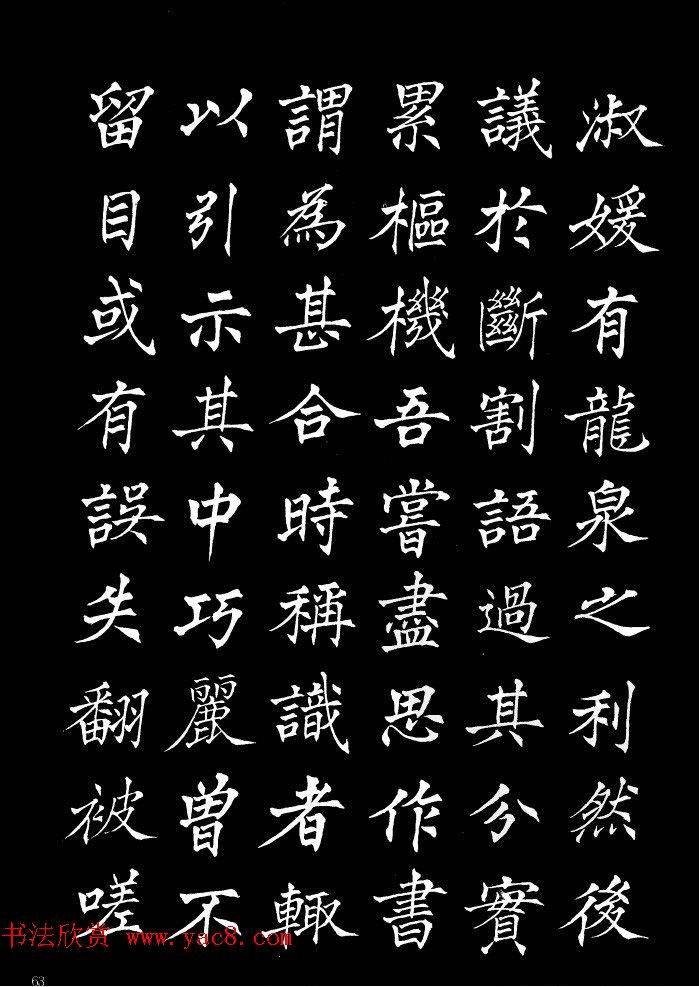 淑媛有龍泉之利然後
議於斷割語過其分實
累樞機吾嘗盡思作書
謂為甚合時稱識者輙
以引示其中巧麗曾不
留目或有誤失翻被嗟
书法欣赏 www.yac8.com
63